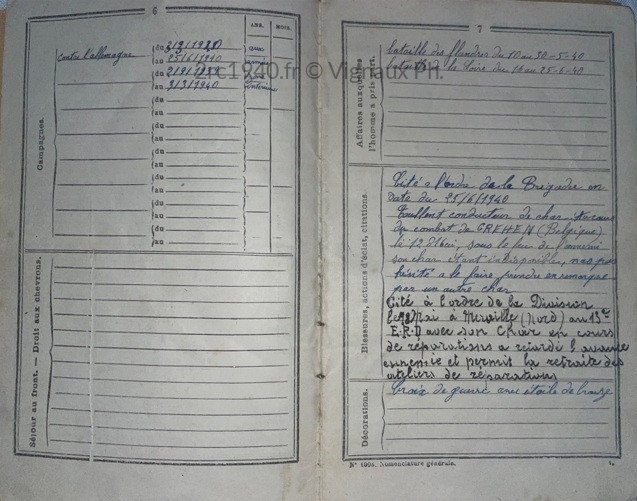 6
ANS.
MOIS.
Campagnes.
contre l'allemagne
du 2/9/1939
au 25/6/1940
du 2/9/1939
au 3/3/1940
intérieur
du
au
du
au
du
au
du
au
du
au
du
au
Séjour au front. — Droit aux chevrons.
2rc1940.fr © Vignaux Ph.
7
Affaires auxquelles
l'homme a pris part.
bataille des flandres du 10 au 30-5-40
de la Loire du au 25-6-40
Blessures, actions d'éclat, citations.
Cité a l'ordre de la Brigade en
date du 25/6/1940
Exellent conducteur de char. Au cours
du combat de CREHEN (Belgique)
le 12 Mai, sous le feu de l'ennemi
son char étant indisponible, n'as pas
hésité a le faire prendre en remorque
par un autre char
Cité à l'ordre de la Division
le 28 Mai à Merville (Nord) au 13e
E.R.D avec son Char en cours
de réparations a retardé l'avance
ennemie et permit la retraite des
ateliers de réparations
Décorations.
Croix de guerre avec étoile de bronze
N° 1095. Nomenclature générale.